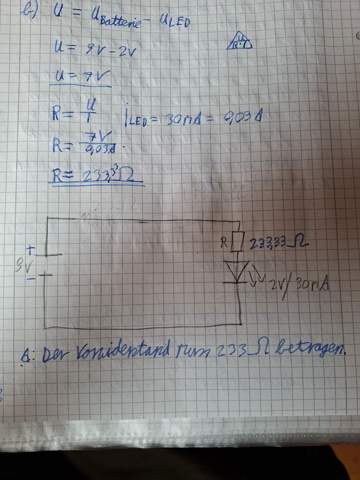 b) U = U Batterie - U LED
U = 9V - 2V
U = 7V
R = U/I  I LED = 30mA = 0,03A
R = 7V/0,03A
R = 233,3Ω
R 233,33Ω
+
9V
-
2V/30mA
A: Der Vorwiderstand muss 233Ω betragen.